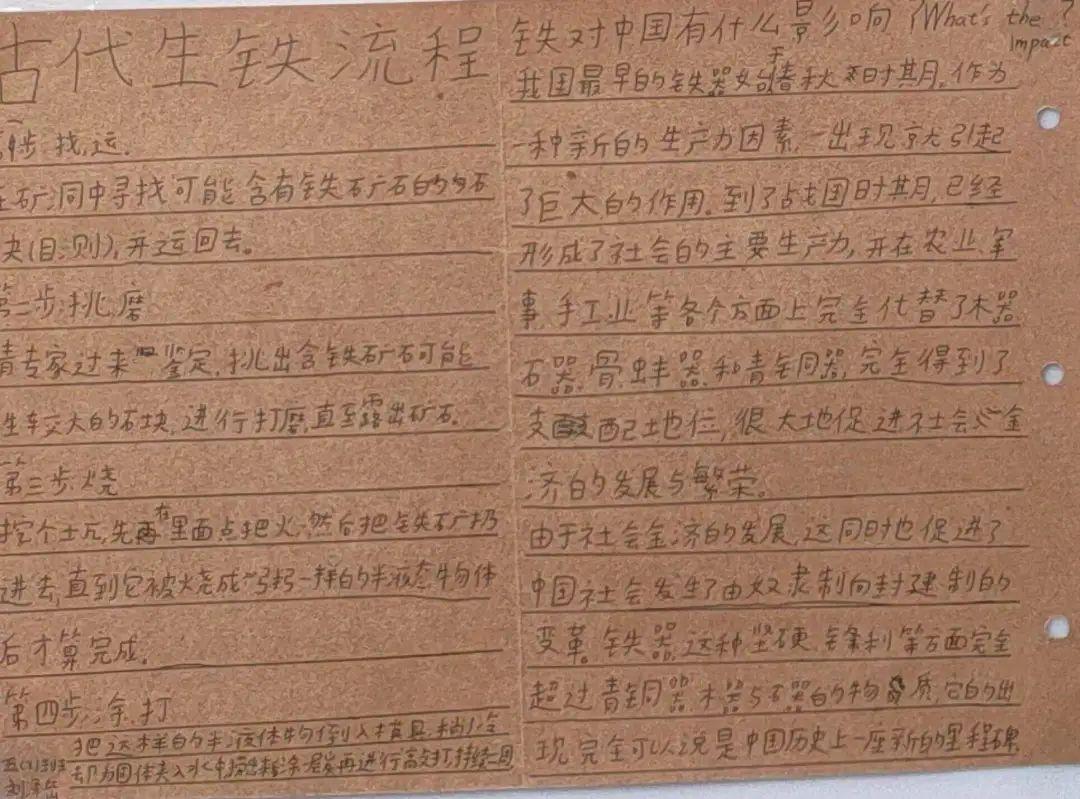 古代生铁流程
第一步:找,运.
在矿洞中寻找可能含有铁矿石的石
块(目测),并运回去。
第二步:挑,磨
请专家过来鉴定,挑出含铁矿石可能
性较大的石块,进行打磨,直至露出矿石.
第三步:烧
挖个土坑,先在里面点把火,然后把铁矿扔
进去,直到它被火烧成一样的半液态物体
后才算完成.
第四步:涂,打
把这样的半液体物倒入模具,稍冷
却为固体夹入水中再进行高打,持续一周
铁对中国有什么影响?What's the impact?
我国最早的铁器始于春秋时期.作为
一种新的生产力因素,一出现就引起
了巨大的作用.到了战国时期,已经
形成了社会的主要生产力,并在农业,军
事,手工业等各个方面上完全代替了木器
石器,骨,蚌器,和青铜器,完全得到了
支配地位,很大地促进社会
济的发展与繁荣。
由于社会经济的发展,这同时也促进了
中国社会发生了由奴隶制向封建制的
变革.铁器这种坚硬,锋利等方面完全
超过青铜器,木器与石器的物质,它的出
现,完全可以说是中国历史上一座新的里程碑